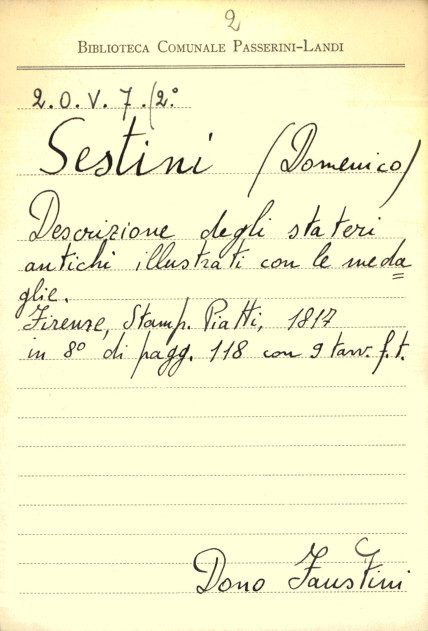 2
BIBLIOTECA COMUNALE PASSERINI-LANDI
2.O.V.7.(2°
Sestini (Domenico)
Descrizione degli stateri
antichi illustrati con le meda=
glie.
Firenze, Stamp. Piatti, 1817
in 8° di pagg. 118 con 9 tavv. f.t.
Dono Faustini